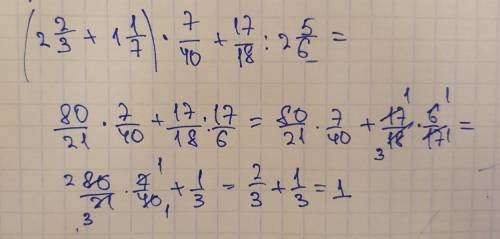 (2 2/3 + 1 1/7) · 7/40 + 17/18 : 2 5/6 =
80/21 · 7/40 + 17/18 : 17/6 = 80/21 · 7/40 + 17 1/18 3 · 6 1/17 1 =
2 80/21 3 · 7 1/40 1 + 1/3 = 2/3 + 1/3 = 1